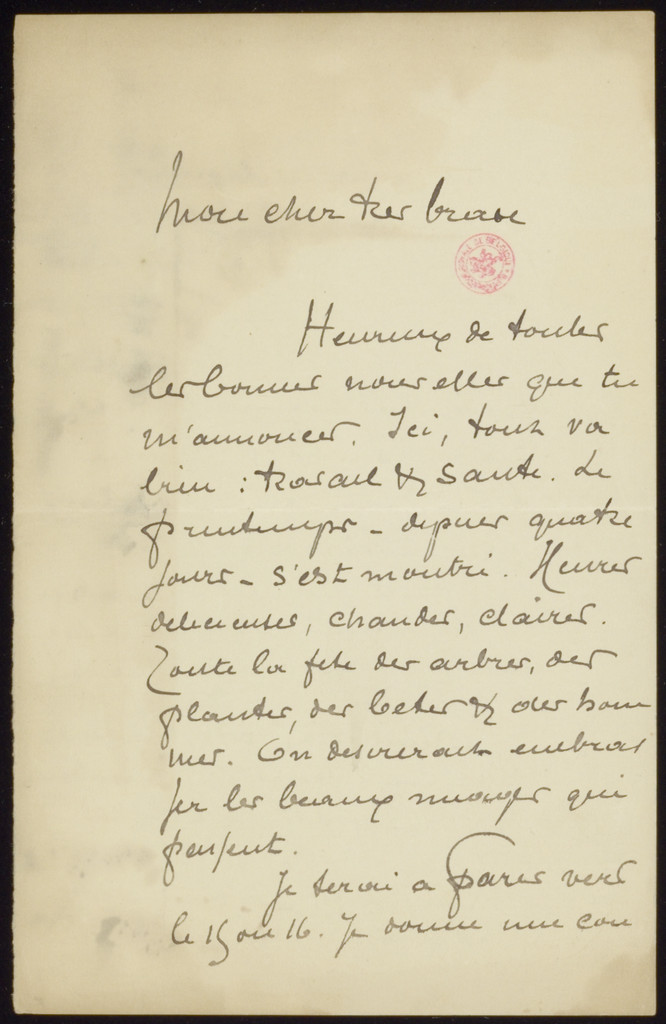 Mon cher très brave
Heureux de toutes
les bonnes nouvelles que tu
m'annonces. Ici, tout va
bien : travail & santé. Le
printemps – depuis quatre
jours – s'est montré. Heures
délicieuses, chaudes, claires.
Toute la fête des arbres, des
plantes, des bêtes & des hom
mes. On désirerait embras
ser les beaux nuages qui
passent.
Je serai à Paris vers
le 15 ou 16. Je donne une con